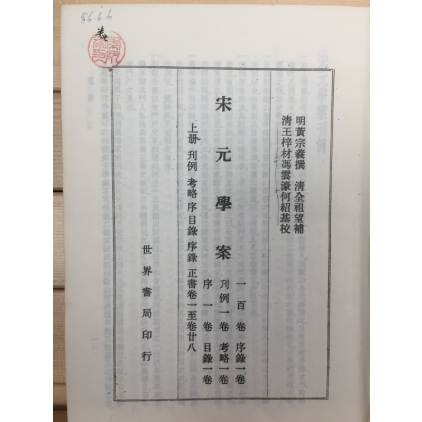 86.6.6
明黃宗羲撰 清全祖望補
清王梓材馮雲濠何紹基校
宋元學案
一百卷 序錄一卷
刋例一卷 考略一卷
序一卷 目錄一卷
上册 刋例 考略 序 目錄 序錄 正書卷一至卷廿八
世界書局印行